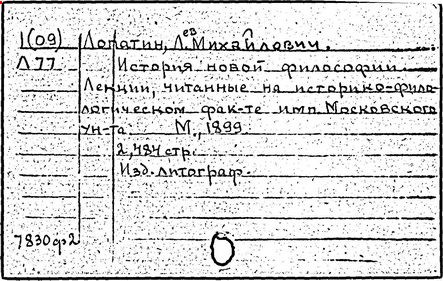 1(09) Лопатин, Лев Михайлович.
Л77 История новой философии.
Лекции, читанные на историко-фило-
логическом фак-те имп. Московского
ун-та. М., 1899.
2, 484 стр.
Изд. литограф.
7830ф2